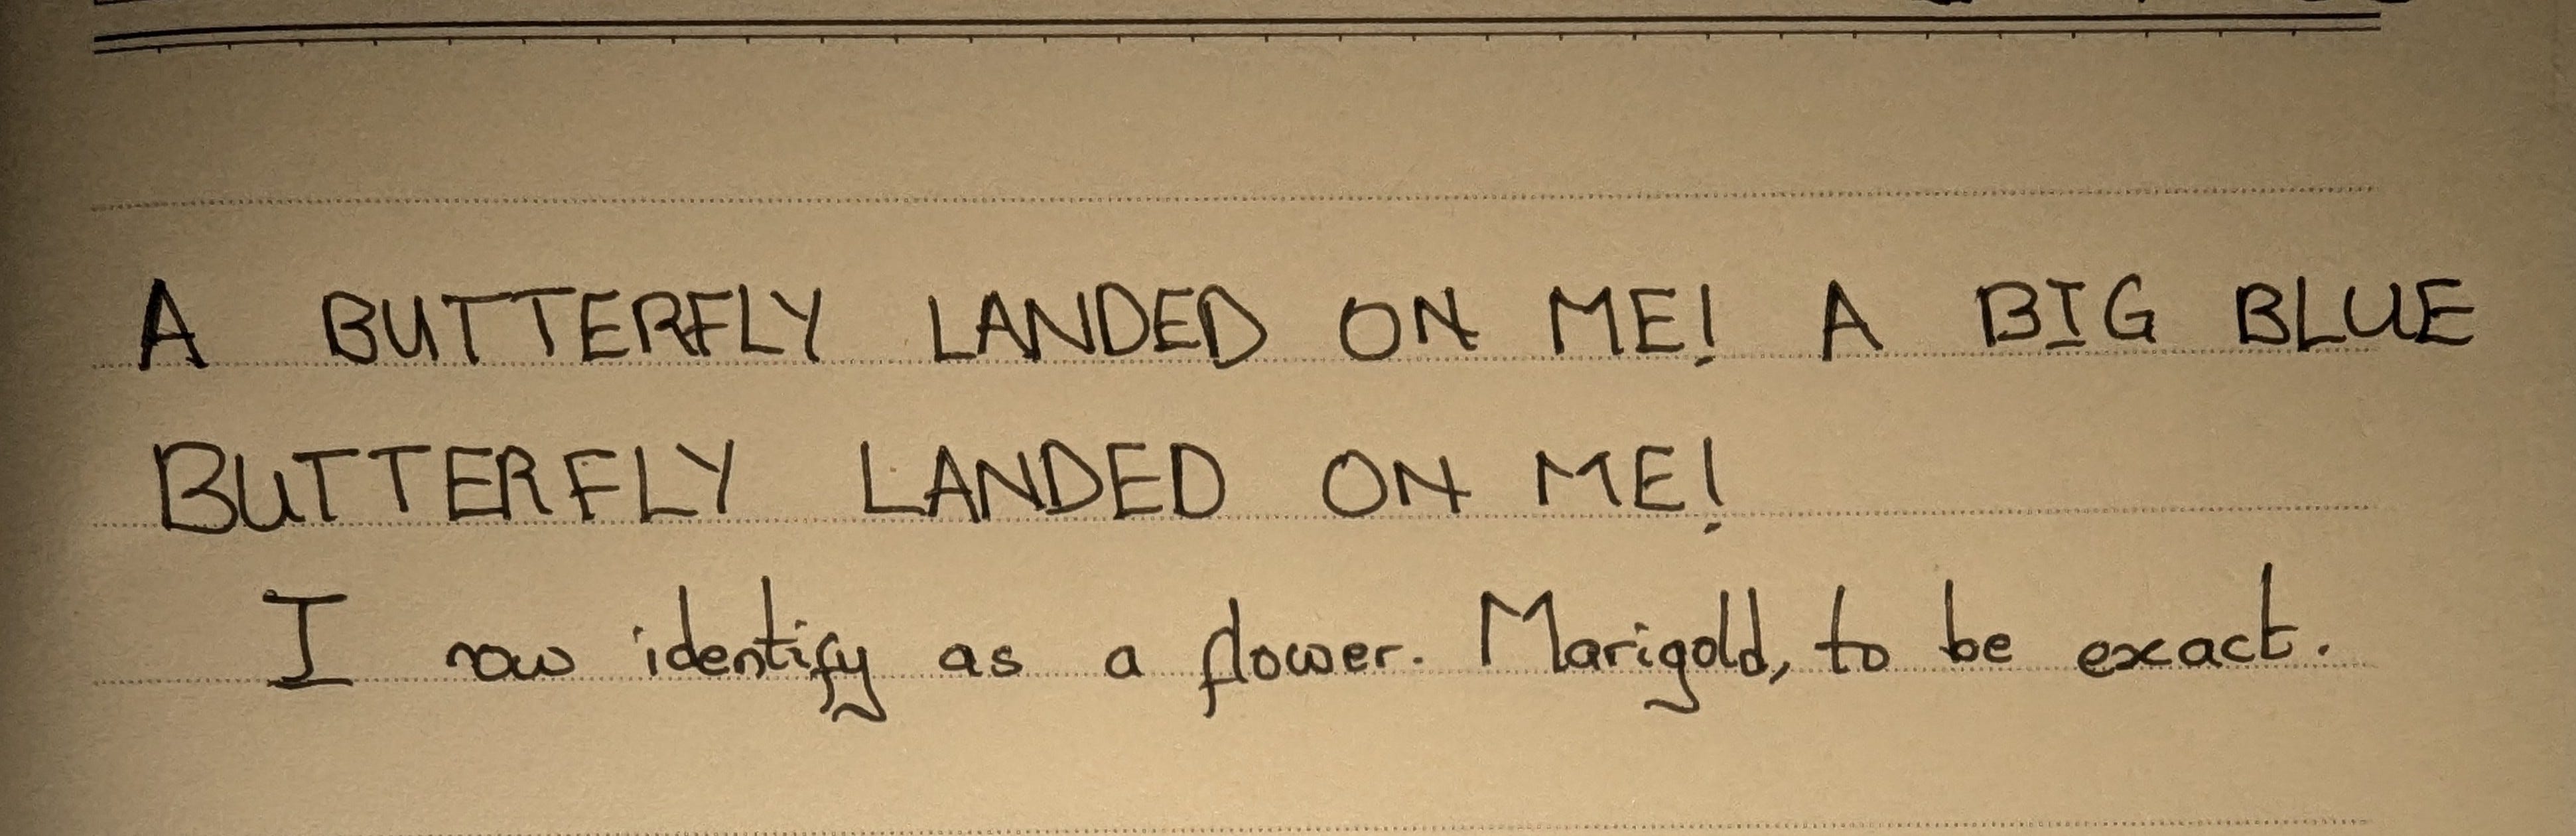 A BUTTERFLY LANDED ON ME! A BIG BLUE
BUTTERFLY LANDED ON ME!
I now identify as a flower. Marigold, to be exact.